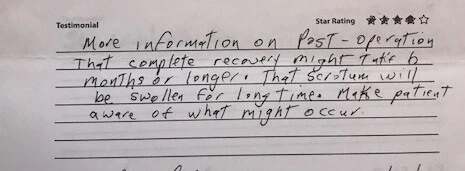 Testimonial Star Rating ★★★★☆
More information on Post-operation
That complete recovery might take 6
months or longer. That scrotum will
be swollen for long time. Make patient
aware of what might occur.